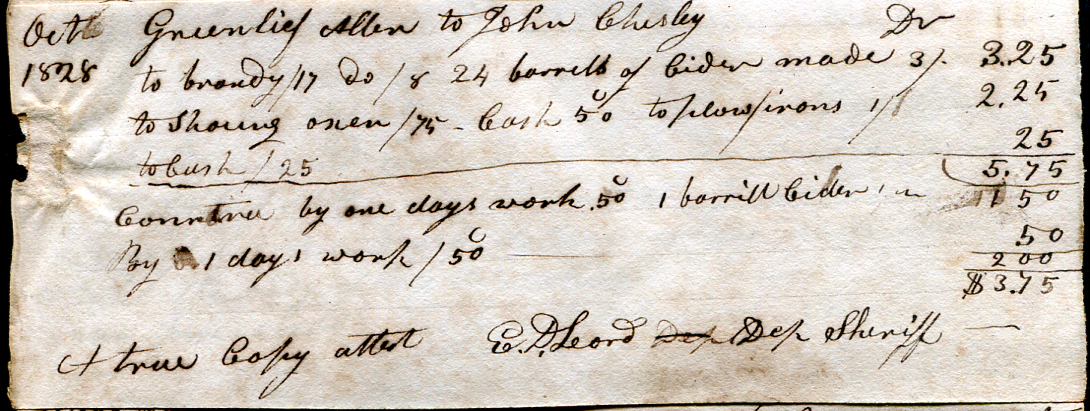 Oct Greenlief Allen to John Chesley Dr
1828 to brandy /17 Do /8 24 barrells of Cider made 3/. 3.25
to Shoeing oxen /75 - Cash 50 to plow irons 1/ 2.25
25
to Cash /25 5.75
Conntra by one days work .50 1 barrill Cider 1 1 50
50
By 1 days work /50 2 00
$3.75
A true Copy attest E. D. Leord Dep Dep Sheriff